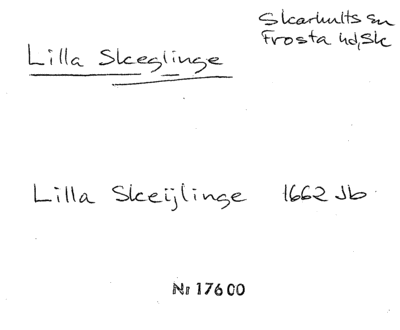 Skarhults sn
Frosta hd, Sk
Lilla Skeglinge
Lilla Skeijlinge 1662 Jb
Nr 17600